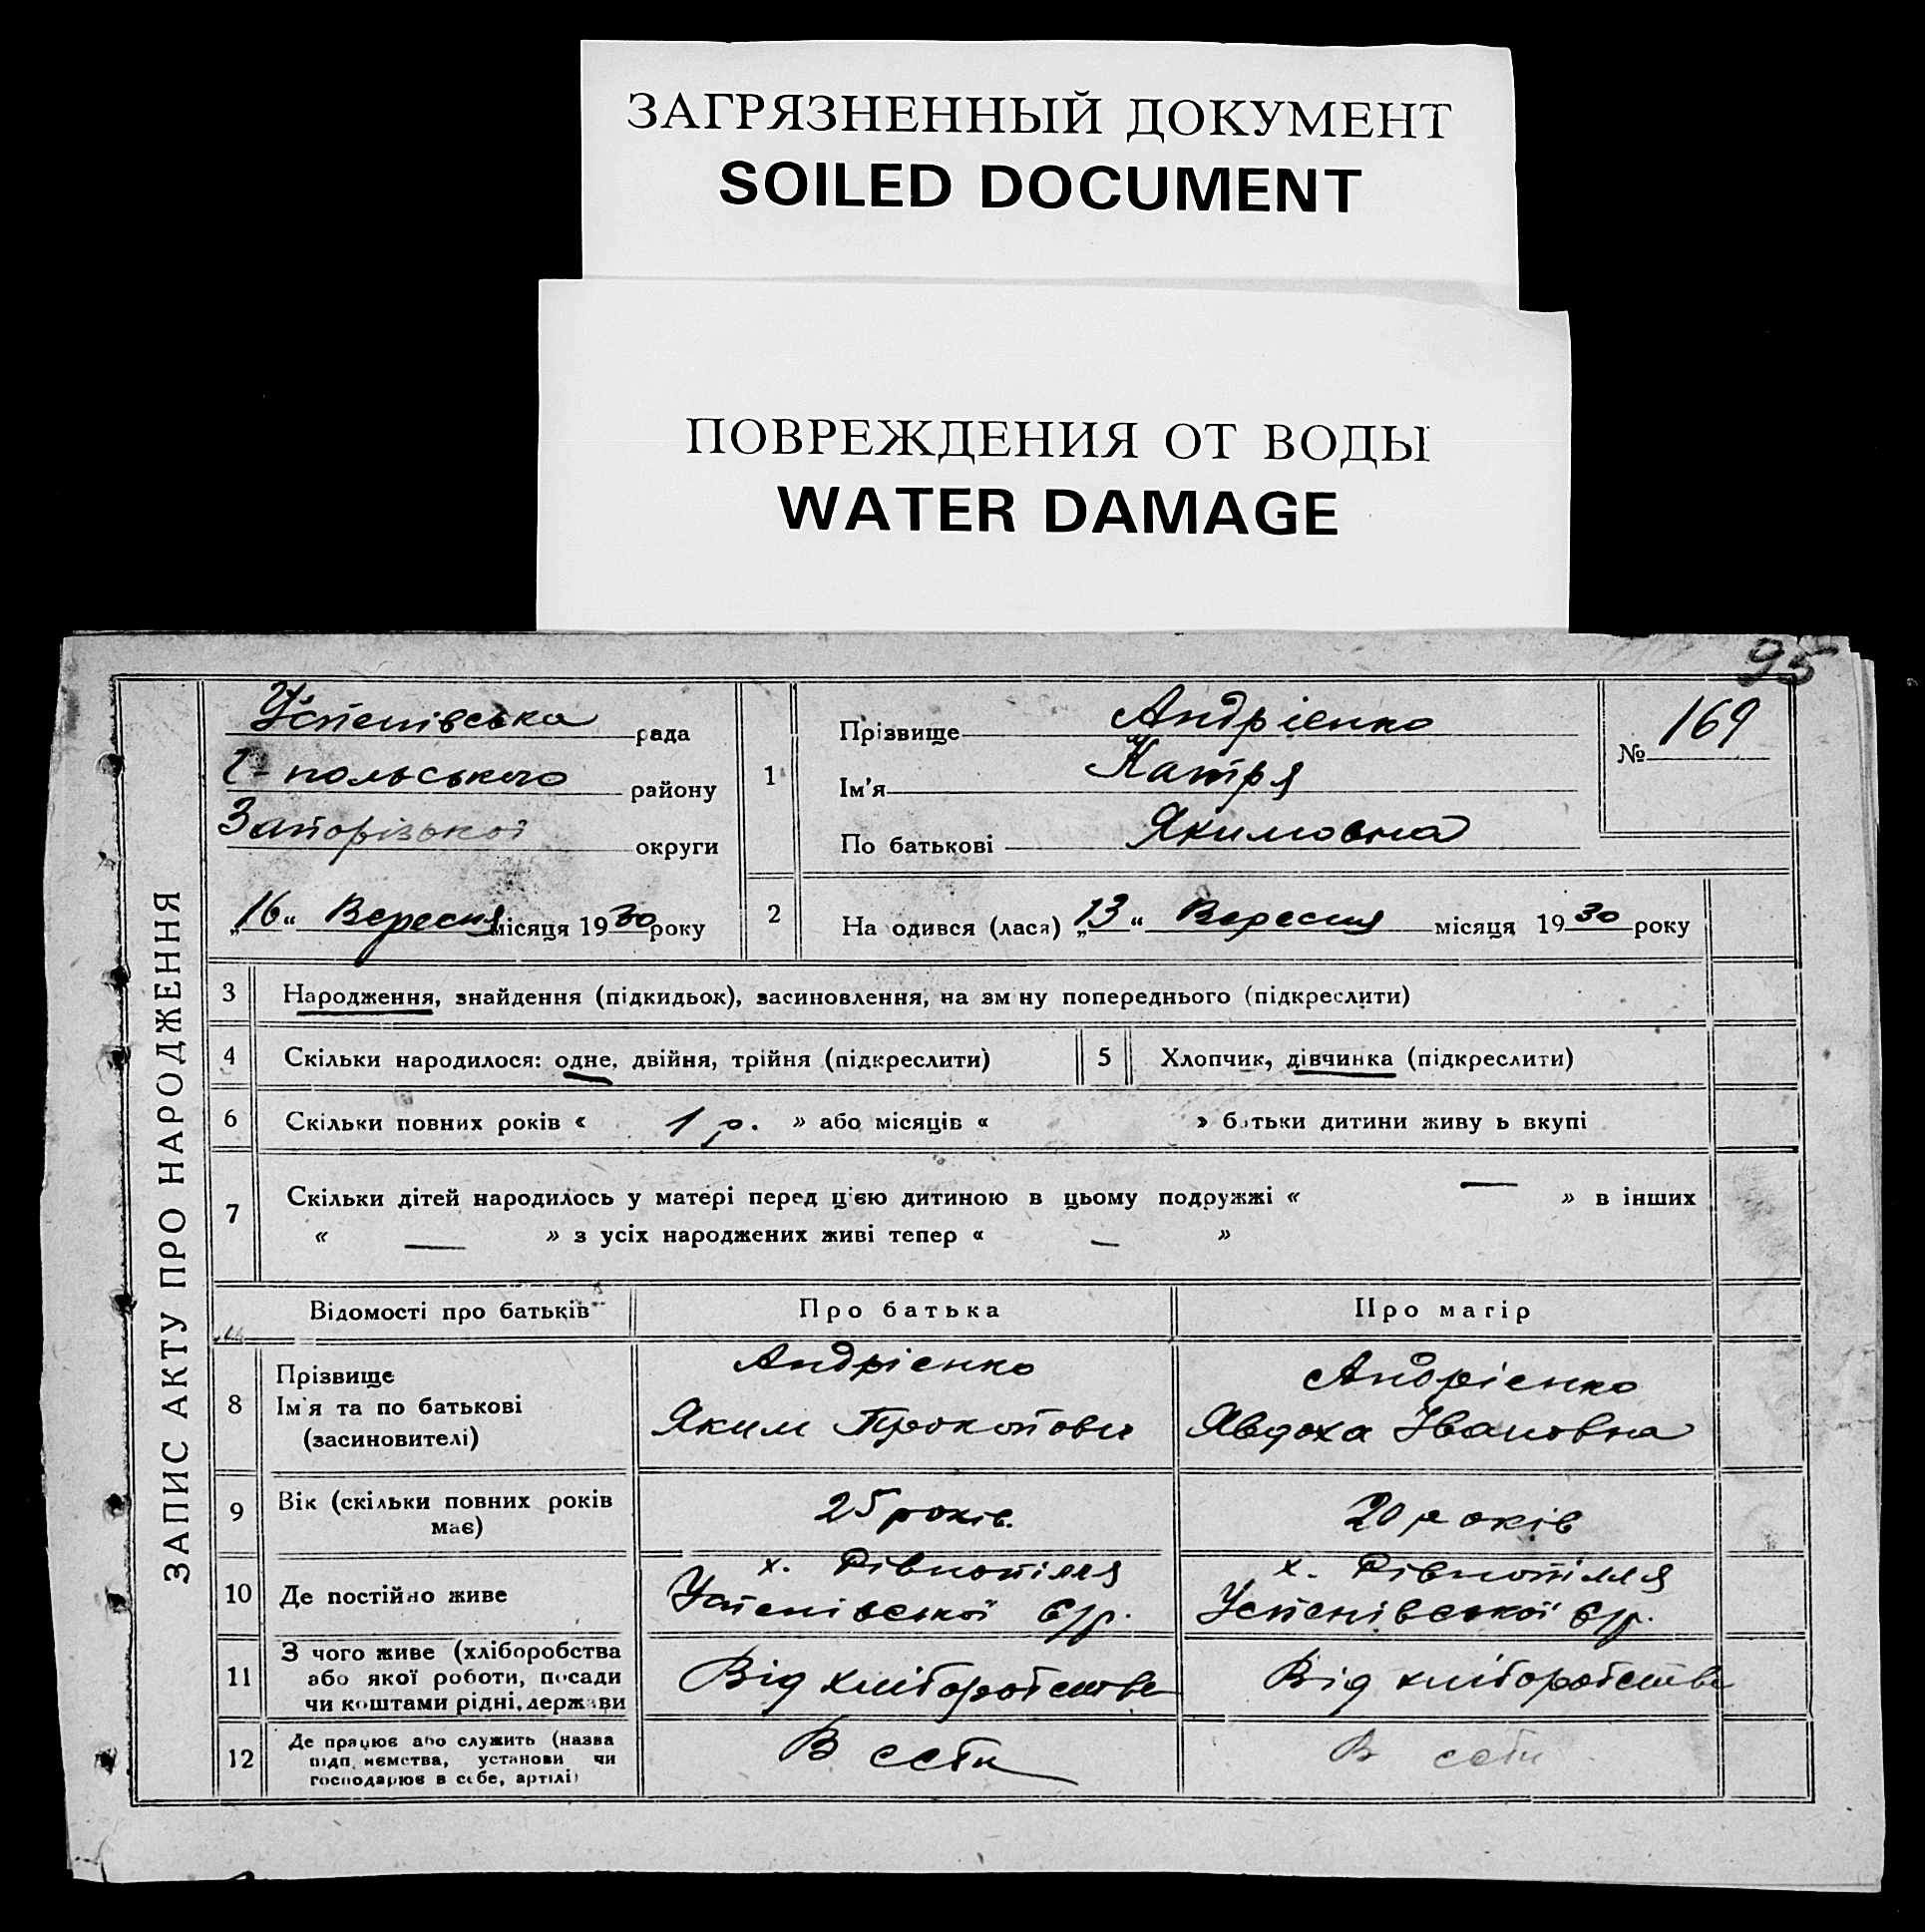 ЗАГРЯЗНЕННЫЙ ДОКУМЕНТ
SOILED DOCUMENT
ПОВРЕЖДЕНИЯ ОТ ВОДЫ
WATER DAMAGE
95
ЗАПИС АКТУ ПРО НАРОДЖЕННЯ
Успенівська рада
польського району
Запорізької округи
„16“ Вересня місяця 1930 року
1
Прізвище Андрієнко
Ім'я Катря
По батькові Якимовна
№ 169
2
На одився (лася) „13“ Вересня місяця 1930 року
3 Народження, знайдення (підкидьок), засиновлення, на зм ну попереднього (підкреслити)
4 Скільки народилося: одне, двійня, трійня (підкреслити)
5 Хлопчик, дівчинка (підкреслити)
6 Скільки повних років « 1 р. » або місяців « » батьки дитини живу ь вкупі
7 Скільки дітей народилось у матері перед цією дитиною в цьому подружжі « — » в інших
« — » з усіх народжених живі тепер « — »
Відомості про батьків Про батька Про матір
8 Прізвище
Ім'я та по батькові
(засиновителі)
Андрієнко
Яким Прокопович
Андрієнко
Явдоха Івановна
9 Вік (скільки повних років
має)
25 років.
20 років
10 Де постійно живе
х. Рівнопілля
Успенівської с/р.
х. Рівнопілля
Успенівської с/р.
11 З чого живе (хліборобства
або якої роботи, посади
чи коштами рідні, держави
Від хліборобства
Від хліборобства
12 Де працює або служить (назва
підп иємства, установи чи
господарює в себе, артілі)
В себе
В себе